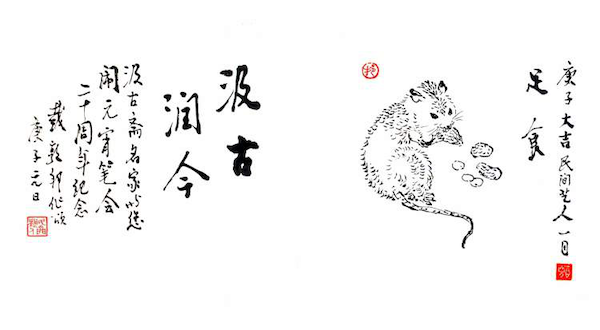 庚子大吉民间艺人一目
足食
汲古
润今
汲古斋名家
闹元宵笔会
二十周年纪念
戴敦邦作颂
庚子元日